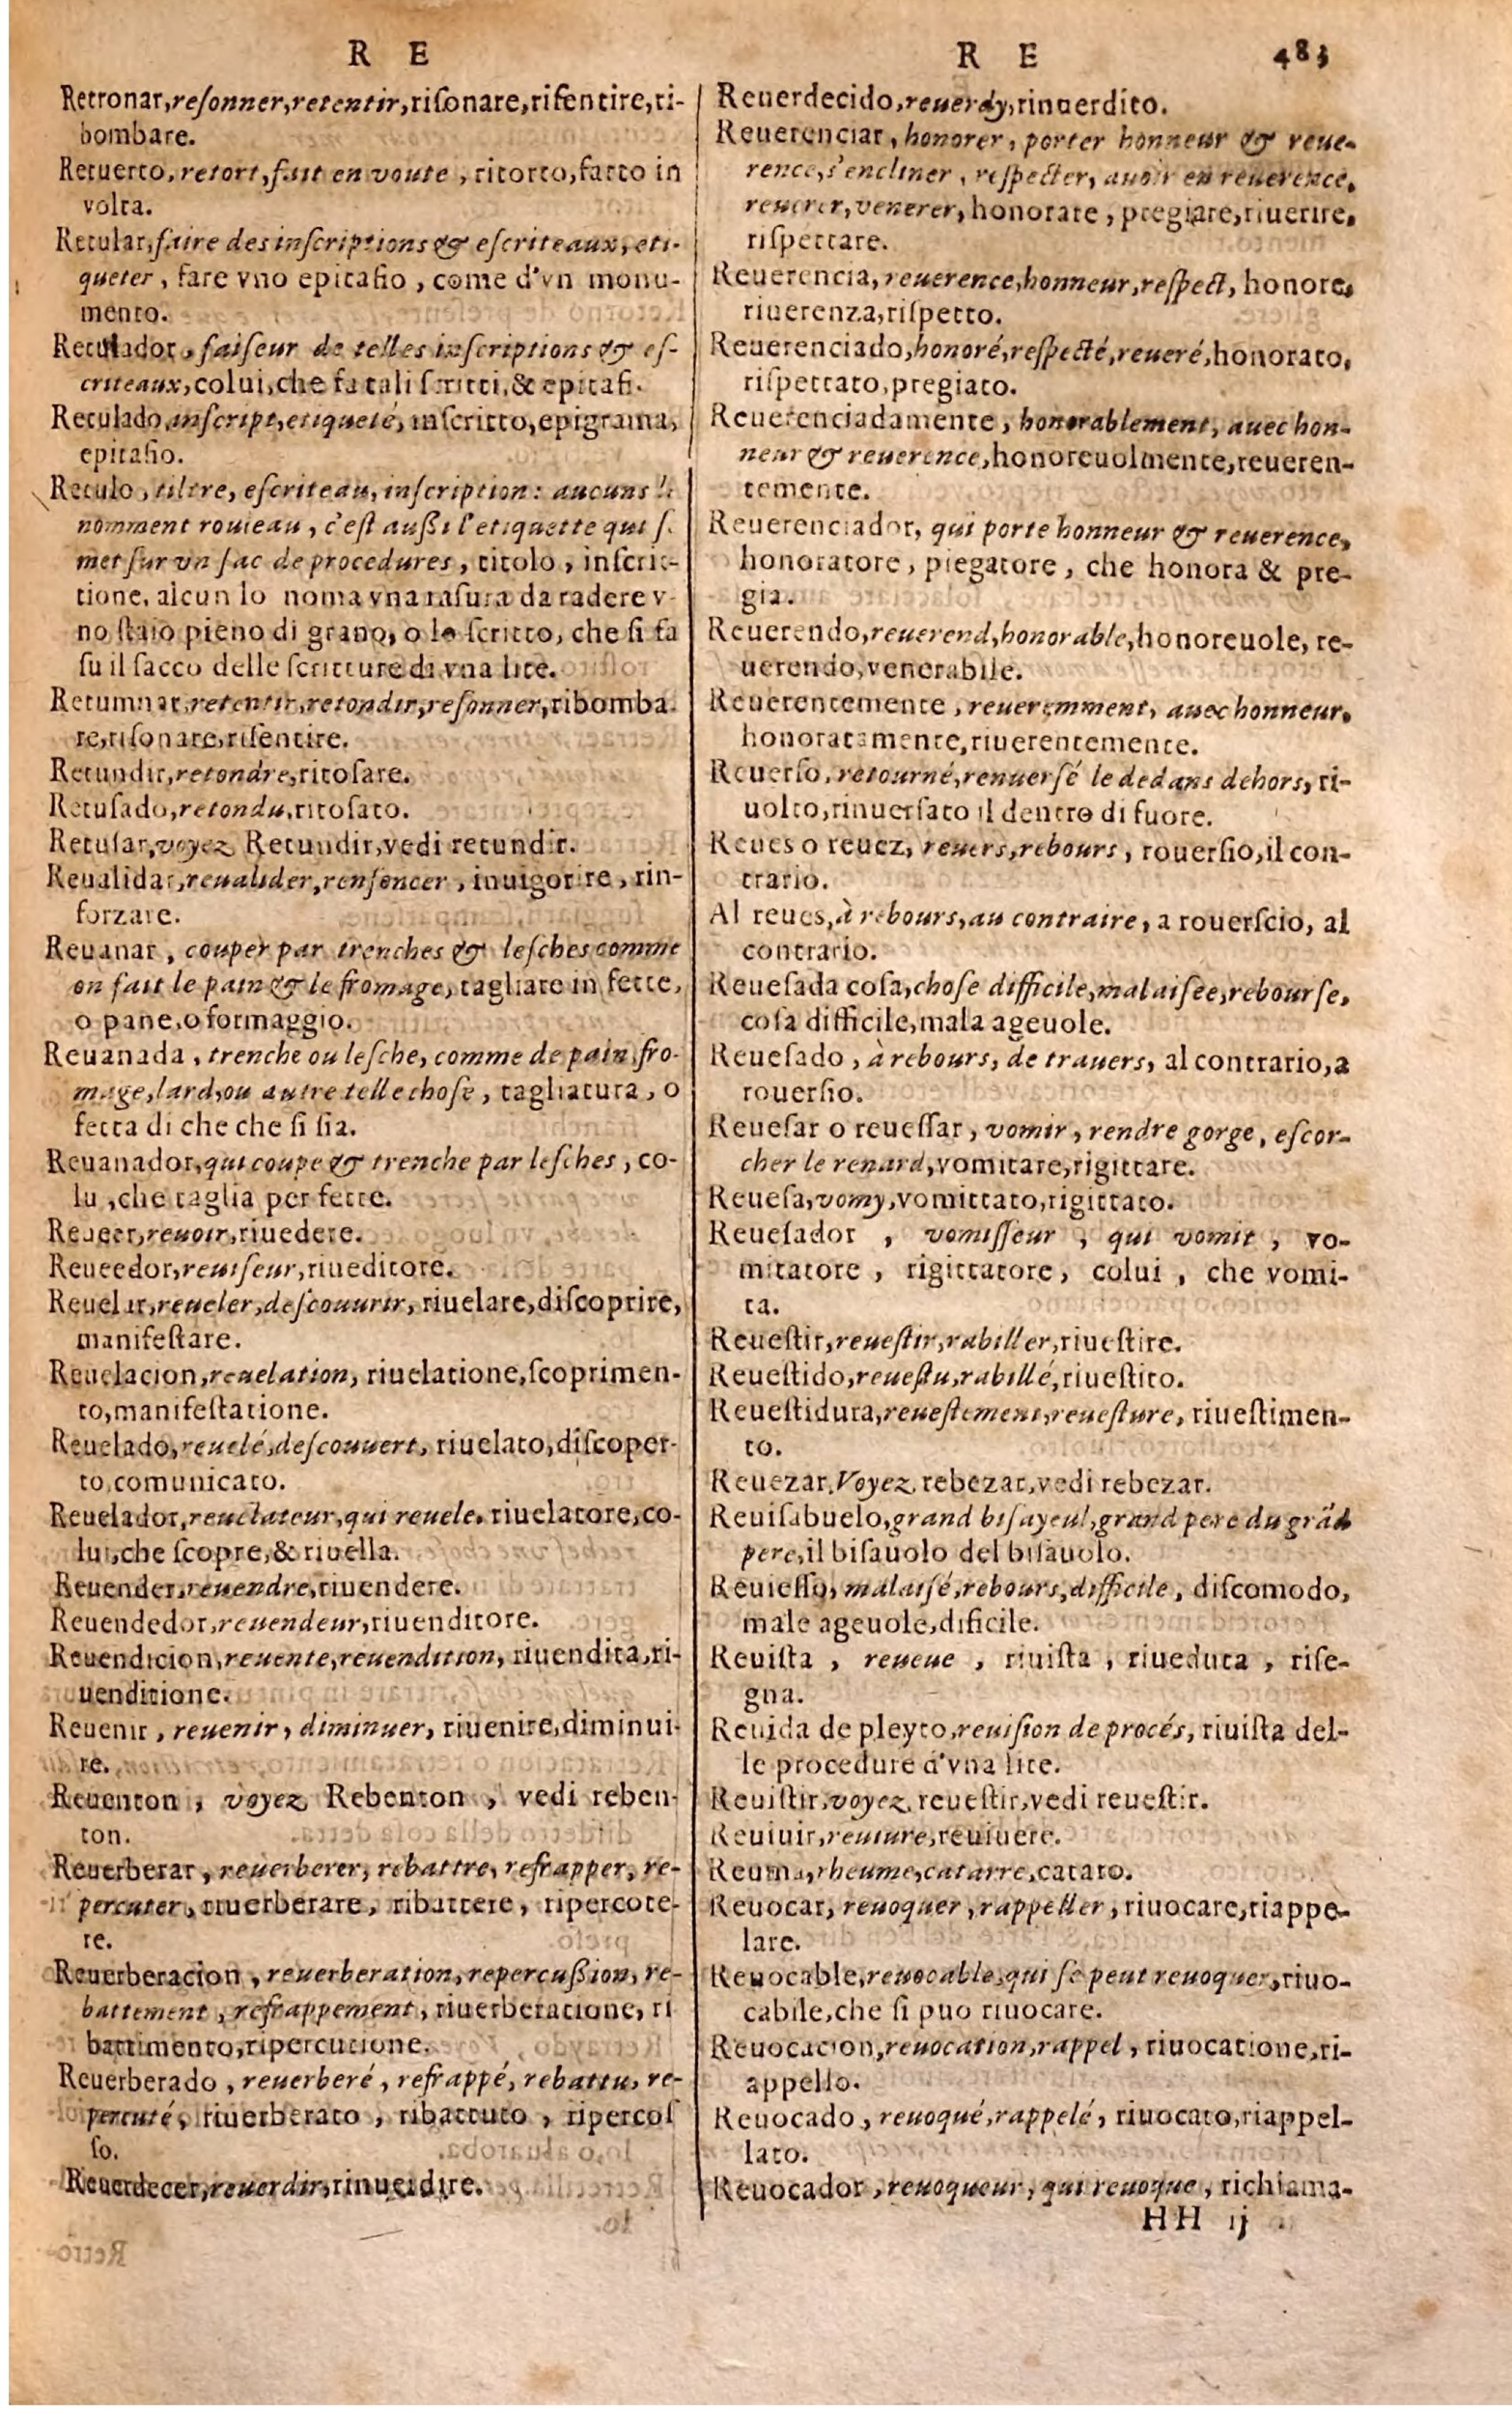 R E
Retronar, reſonner, retentir, riſonare, riſentire, ri-
bombare.
Retuerto, retort, fait en voute, ritorto, fatto in
volta.
Retular, faire des inſcriptions & eſcriteaux, eti-
queter, fare vno epitafio, come d'vn monu-
mento.
Retulador, faiſeur de telles inſcriptions & eſ-
criteaux, colui, che fa tali ſcritti, & epitafi.
Retulado, inſcript, etiqueté, inſcritto, epigrama,
epitafio.
Retulo, tiltre, eſcriteau, inſcription: aucuns le
nomment rouleau, c'eſt außi l'etiquette qui ſe
met ſur vn ſac de procedures, titolo, inſcrit-
tione, alcun lo noma vna raſura da radere v-
no ſtaio pieno di grano, o lo ſcritto, che ſi fa
ſu il ſacco delle ſcritture di vna lite.
Retumnar, retentir, retondir, reſonner, ribomba-
re, riſonare, riſentire.
Retundir, retondre, ritoſare.
Retuſado, retondu, ritoſato.
Retuſar, voyez Retundir, vedi retundir.
Reualidar, reualider, renforcer, inuigorire, rin-
forzare.
Reuanar, couper par trenches & leſches comme
on fait le pain & le fromage, tagliare in fette,
o pane, o formaggio.
Reuanada, trenche ou leſche, comme de pain, fro-
mage, lard, ou autre telle choſe, tagliatura, o
fetta di che che ſi ſia.
Reuanador, qui coupe & trenche par leſches, co-
lu, che taglia per fette.
Reueer, reuoir, riuedere.
Reueedor, reuiſeur, riueditore.
Reuelar, reueler, deſcouurir, riuelare, diſcoprire,
manifeſtare.
Reuelacion, reuelation, riuelatione, ſcoprimen-
to, manifeſtatione.
Reuelado, reuelé, deſcouuert, riuelato, diſcoper-
to, comunicato.
Reuelador, reuelateur, qui reuele, riuelatore, co-
lui, che ſcopre, & riuella.
Reuender, reuendre, riuendere.
Reuendedor, reuendeur, riuenditore.
Reuendicion, reuente, reuendition, riuendita, ri-
uenditione.
Reuenir, reuenir, diminuer, riuenire, diminui-
re.
Reuenton, voyez Rebenton, vedi reben-
ton.
Reuerberar, reuerberer, rebattre, refrapper, re-
percuter, riuerberare, ribattere, ripercote-
re.
Reuerberacion, reuerberation, repercußion, re-
battement, refrappement, riuerberatione, ri
battimento, ripercutione.
Reuerberado, reuerberé, refrappé, rebattu, re-
percuté, riuerberato, ribattuto, ripercoſ
ſo.
Reuerdecer, reuerdir, rinuerdire.
R E 483
Reuerdecido, reuerdy, rinuerdito.
Reuerenciar, honorer, porter honneur & reue-
rence, s'encliner, reſpecter, auoir en reuerence,
reuerer, venerer, honorare, pregiare, riuerire,
riſpettare.
Reuerencia, reuerence, honneur, reſpect, honore,
riuerenza, riſpetto.
Reuerenciado, honoré, reſpecté, reueré, honorato,
riſpettato, pregiato.
Reuerenciadamente, honorablement, auec hon-
neur & reuerence, honoreuolmente, reueren-
temente.
Reuerenciador, qui porte honneur & reuerence,
honoratore, piegatore, che honora & pre-
gia.
Reuerendo, reuerend, honorable, honoreuole, re-
uerendo, venerabile.
Reuerentemente, reueremment, auec honneur,
honoratamente, riuerentemente.
Reuerſo, retourné, renuerſé le dedans dehors, ri-
uolto, rinuerſato il dentro di fuore.
Reues o reuez, reuers, rebours, rouerſio, il con-
trario.
Al reues, à rebours, au contraire, a rouerſcio, al
contrario.
Reueſada coſa, choſe difficile, malaiſee, rebourſe,
coſa difficile, mala ageuole.
Reueſado, à rebours, de trauers, al contrario, a
rouerſio.
Reueſar o reueſſar, vomir, rendre gorge, eſcor-
cher le renard, vomitare, rigittare.
Reueſa, vomy, vomittato, rigittato.
Reueſador, vomiſſeur, qui vomit, vo-
mitatore, rigittatore, colui, che vomi-
ta.
Reueſtir, reueſtir, rabiller, riueſtire.
Reueſtido, reueſtu, rabillé, riueſtito.
Reueſtidura, reueſtement, reueſture, riueſtimen-
to.
Reuezar, Voyez rebezar, vedi rebezar.
Reuiſabuelo, grand biſayeul, grand pere du grãd
pere, il biſauolo del biſauolo.
Reuieſſo, malaiſé, rebours, difficile, diſcomodo,
male ageuole, dificile.
Reuiſta, reueue, riuiſta, riueduta, riſe-
gna.
Reuida de pleyto, reuiſion de procés, riuiſta del-
le procedure d'vna lite.
Reuiſtir, voyez reueſtir, vedi reueſtir.
Reuiuir, reuiure, reuiuere.
Reuma, rheume, catarre, cataro.
Reuocar, reuoquer, rappeller, riuocare, riappe-
lare.
Reuocable, reuocable, qui ſe peut reuoquer, riuo-
cabile, che ſi puo riuocare.
Reuocacion, reuocation, rappel, riuocatione, ri-
appello.
Reuocado, reuoqué, rappelé, riuocato, riappel-
lato.
Reuocador, reuoqueur, qui reuoque, richiama-
HH ij